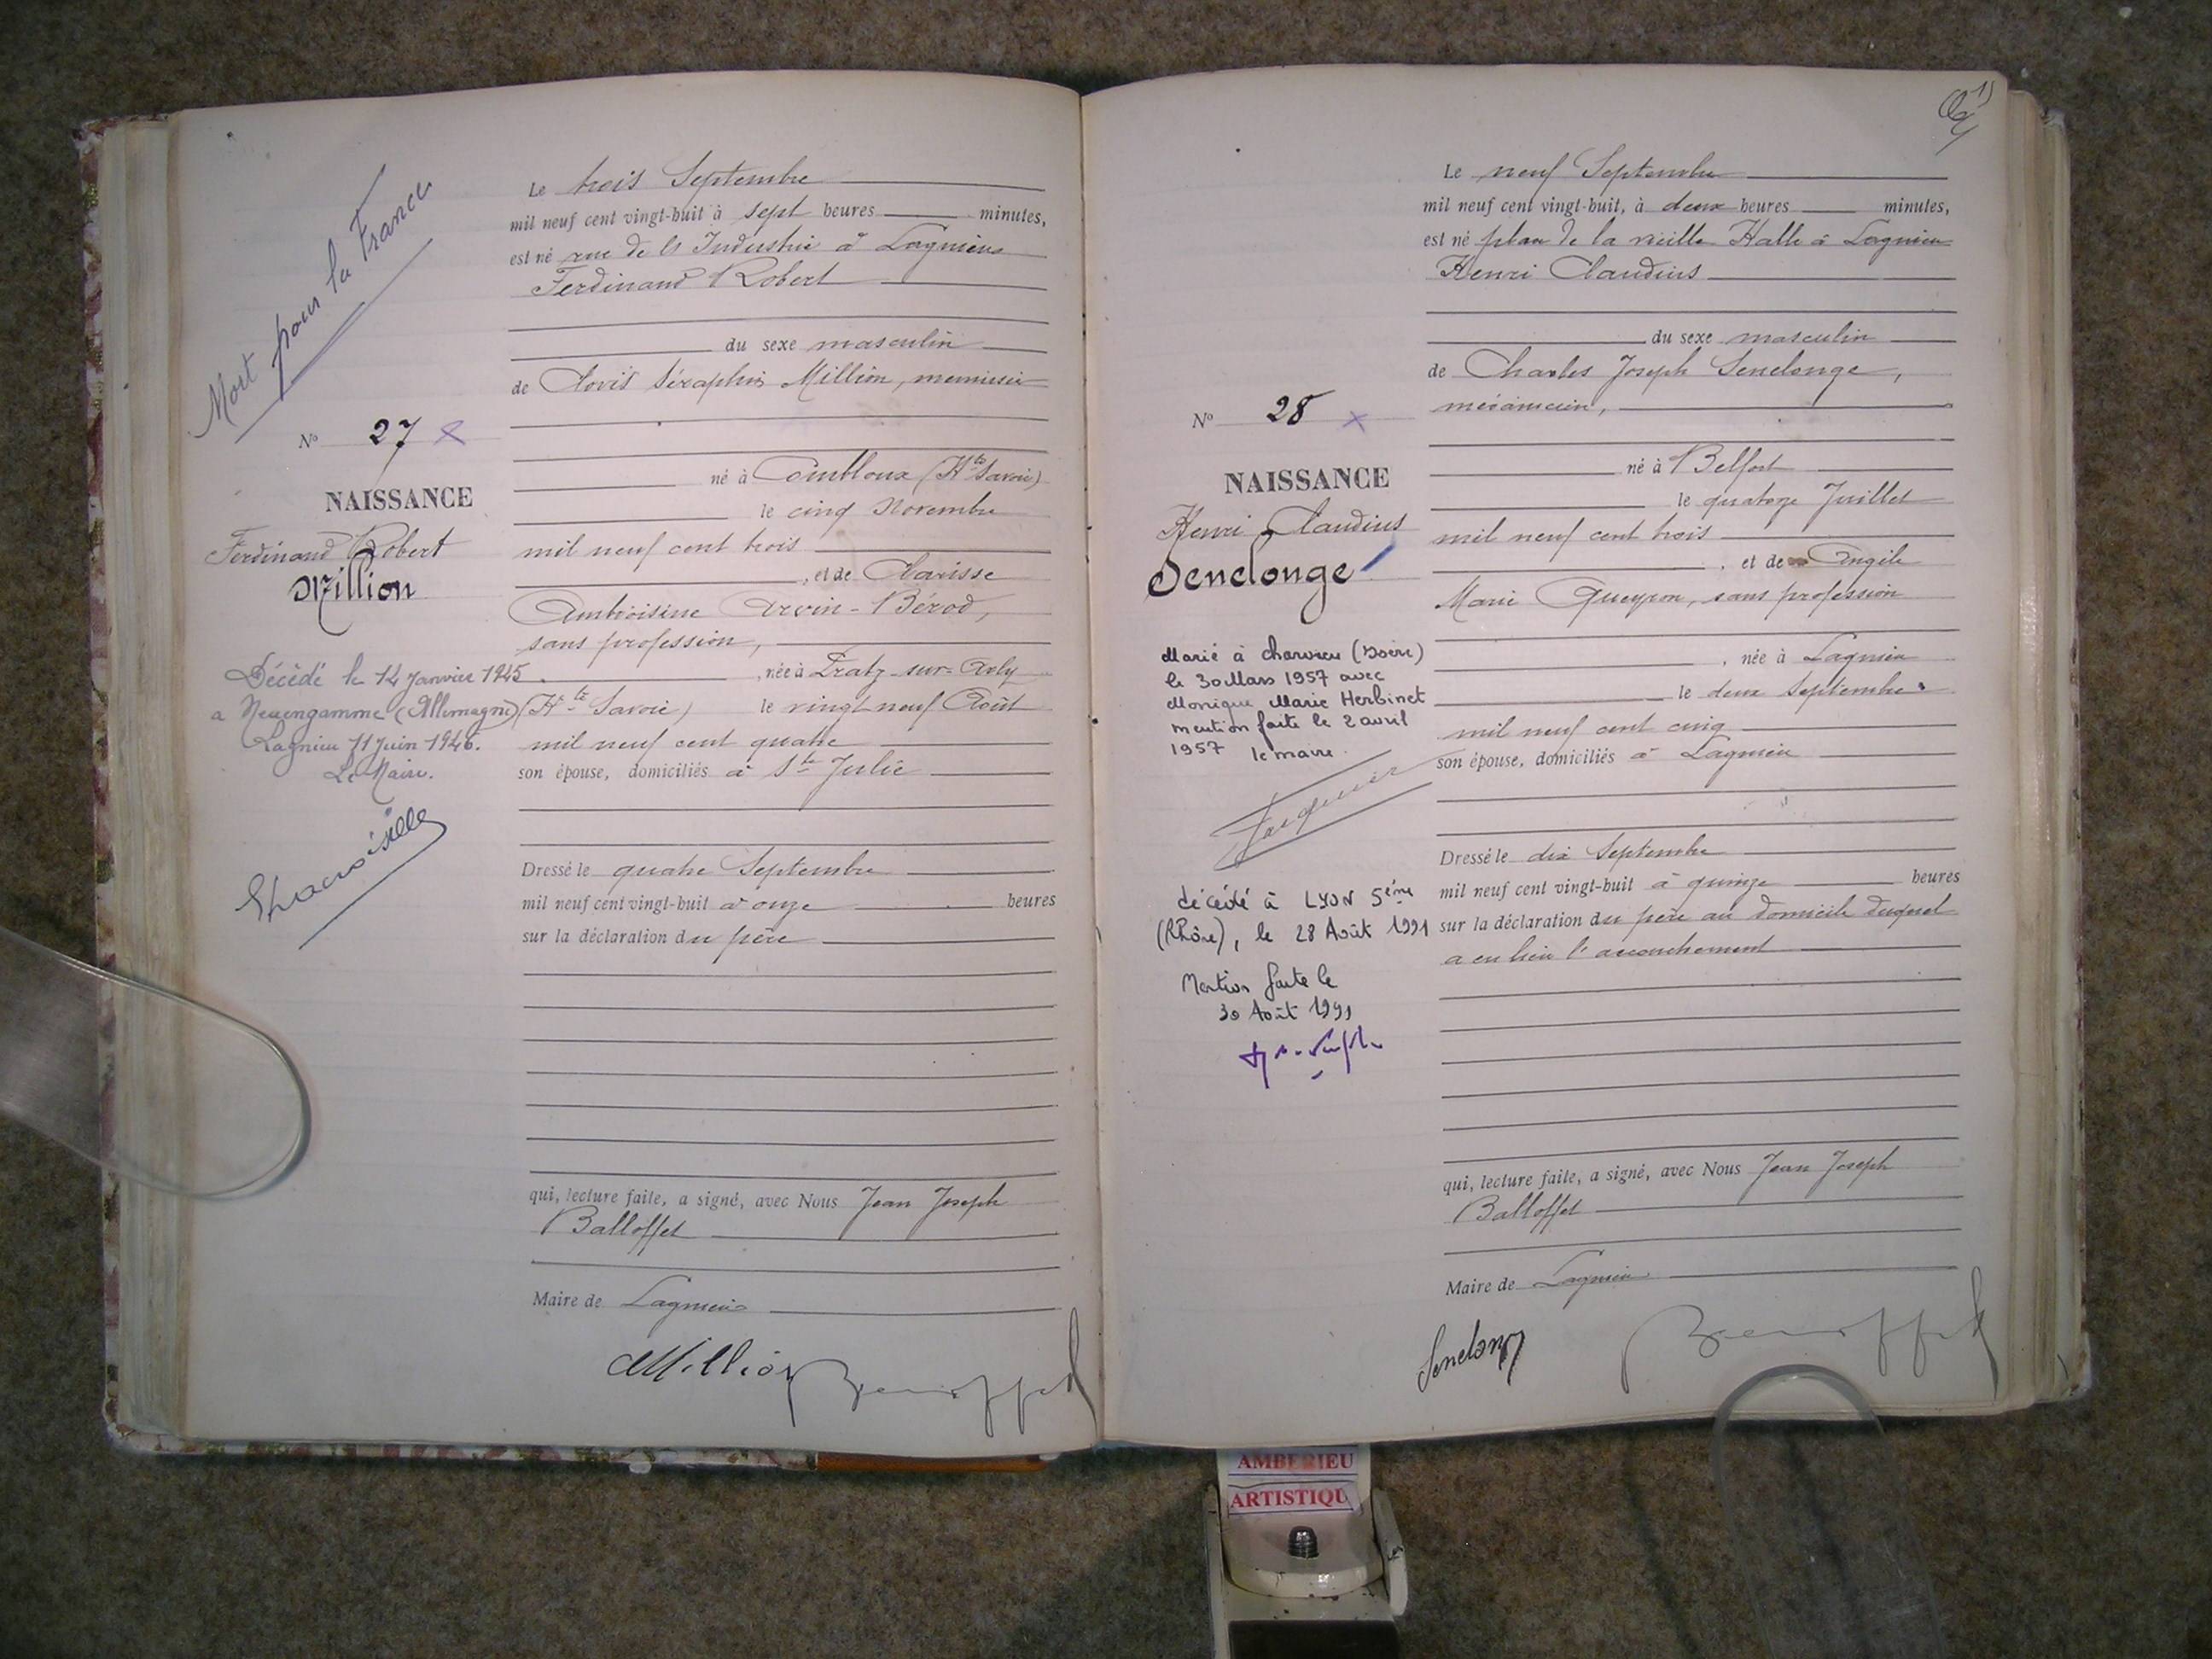 Mort pour la France
N° 27
NAISSANCE
Ferdinand Robert
Million
Décédé le 14 Janvier 1945
a Neuengamme (Allemagne)
Lagnieu 11 Juin 1946.
Le Maire.
Le trois Septembre
mil neuf cent vingt-huit à sept heures minutes,
est né rue de l'Industrie à Lagnieu
Ferdinand Robert
du sexe masculin
de Clovis Séraphin Million, menuisier
né à Combloux (Hte Savoie)
le cinq Novembre
mil neuf cent trois
, et de Clarisse
Ambroisine Arvin-Bérod,
sans profession,
, née à Pratz-sur-Arly
(Hte Savoie) le vingt neuf Août
mil neuf cent quatre
son épouse, domiciliés à Ste Julie
Dressé le quatre Septembre
mil neuf cent vingt-huit à onze heures
sur la déclaration du père
qui, lecture faite, a signé, avec Nous Jean Joseph
Balloffet
Maire de Lagnieu
Million
N° 28
NAISSANCE
Henri Claudius
Senelonge
Marié à Charvieu (Isère)
le 30 Mars 1957 avec
Monique Marie Herbinet
mention faite le 2 avril
1957 le maire.
décédé à LYON 5ème
(Rhône), le 28 Août 1991
Mention faite le
30 Août 1991
Le neuf Septembre
mil neuf cent vingt-huit, à deux heures minutes,
est né place de la vieille Halle à Lagnieu
Henri Claudius
du sexe masculin
de Charles Joseph Senelonge,
mécanicien,
né à Belfort
le quatorze Juillet
mil neuf cent trois
, et de Angèle
Marie Queyron, sans profession
, née à Lagnieu
le deux Septembre
mil neuf cent cinq
son épouse, domiciliés à Lagnieu
Dressé le dix Septembre
mil neuf cent vingt-huit à quinze heures
sur la déclaration du père au domicile duquel
a eu lieu l'accouchement
qui, lecture faite, a signé, avec Nous Jean Joseph
Balloffet
Maire de Lagnieu
Senelonge
AMBERIEU
ARTISTIQU